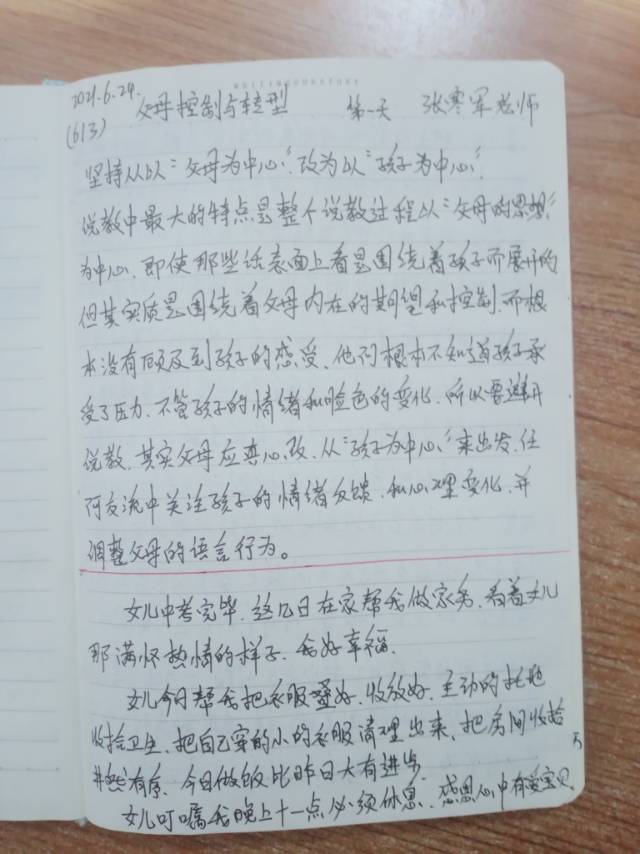 2021.6.24.
(613)
父母控制与转型 第一天 张寒军老师
坚持从以“父母为中心”改为以“孩子为中心”
说教中最大的特点是整个说教过程以“父母的思想”
为中心，即使那些话表面上看是围绕着孩子而展开的
但其实质是围绕着父母内在的期望和控制，而根
本没有顾及到孩子的感受、他们根本不知道孩子承
受了压力、不管孩子的情绪和脸色的变化，所以要避开
说教，其实父母应变心改，从“孩子为中心”来出发，任
何交流中关注孩子的情绪反馈，和心理变化，并
调整父母的语言行为。
女儿中考完毕，这几日在家帮我做家务，看着女儿
那满怀热情的样子，我好幸福，
女儿今日帮我把衣服叠好、收放好，主动的拖地
收拾卫生，把自己穿的小的衣服清理出来，把房间收拾
井然有序，今日做饭比昨日大有进步，
女儿叮嘱我晚上十一点必须休息，感恩心中有爱宝贝